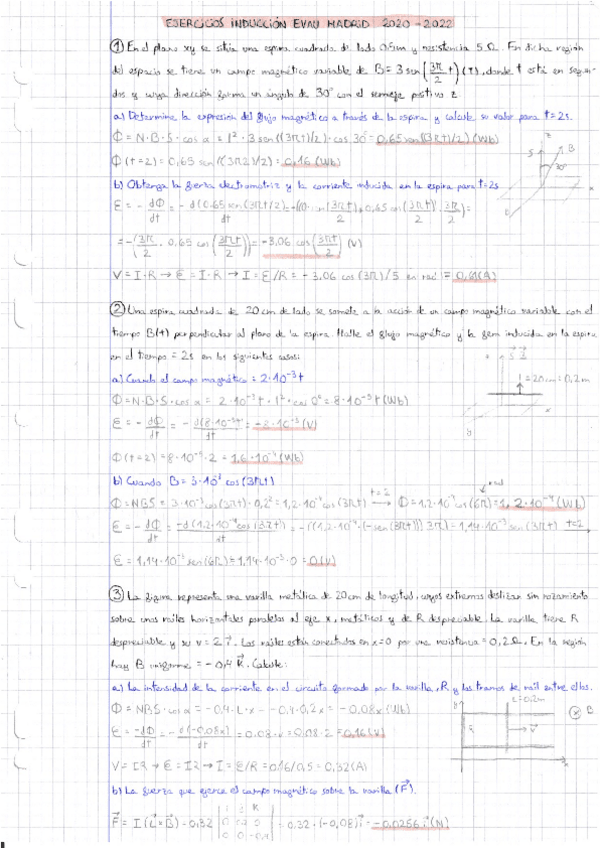 EJERCICIOS INDUCCIÓN EVAU MADRID 2020 - 2022
① En el plano xy se sitúa una espira cuadrada de lado 0,5m y resistencia 5 Ω. En dicha región
del espacio se tiene un campo magnético variable de B = 3 sen(3π/2 t) (T), donde t está en segun-
dos y cuya dirección forma un ángulo de 30° con el semieje positivo z.
a) Determine la expresion del flujo magnético a través de la espira y calcule su valor para t = 2s.
Φ = N·B·S·cos α = l²·3 sen((3πt)/2)·cos 30° = 0,65 sen((3πt)/2) (Wb)
Φ (t=2) = 0,65 sen((3π2)/2) = 0,16 (Wb)
z
S
B
30°
b) Obtenga la fuerza electromotriz y la corriente inducida en la espira para t=2s
ε = - dΦ/dt = - d(0,65 sen(3πt/2)/dt
= -(3π/2 · 0,65 cos(3πt/2)) = -3,06 cos(3πt/2) (V)
V = I·R → ε = I·R → I = ε/R = -3,06 cos(3π)/5 en rad. = 0,61(A)
② Una espira cuadrada de 20 cm de lado se somete a la acción de un campo magnético variable con el
tiempo B(t) perpendicular al plano de la espira. Halle el flujo magnético y la fem inducida en la espira
en el tiempo = 2s en los siguientes casos:
a) Cuando el campo magnético = 2·10⁻³t
l = 20cm = 0,2m
Φ = N·B·S·cos α = 2·10⁻³t · l² · cos 0° = 8·10⁻⁵t (Wb)
ε = - dΦ/dt = - d(8·10⁻⁵t)/dt = -8·10⁻⁵(V)
y
Φ (t=2) = 8·10⁻⁵·2 = 1,6·10⁻⁴ (Wb)
b) Cuando B = 3·10⁻³ cos(3πt)
rad
Φ = NBS = 3·10⁻³ cos(3πt)·0,2² = 1,2·10⁻⁴ cos(3πt) t=2 → Φ = 1,2·10⁻⁴ cos(6π) = 1,2·10⁻⁴ (Wb)
ε = - dΦ/dt = -d(1,2·10⁻⁴ cos(3πt))/dt = -((1,2·10⁻⁴·(-sen(3πt))) 3π) = 1,14·10⁻³ sen(3πt) t=2
ε = 1,14·10⁻³ sen(6π) = 1,14·10⁻³·0 = 0(V)
③ La figura representa una varilla metálica de 20cm de longitud, cuyos extremos deslizan sin rozamiento
sobre unos raíles horizontales paralelos al eje x, metálicos y de R despreciable. La varilla tiene R
despreciable y su v = 2 i. Los raíles están conectados en x=0 por una resistencia = 0,2Ω. En la región
hay B uniforme = -0,4 k. Calcule:
a) La intensidad de la corriente en el circuito formado por la varilla, R y los tramos de raíl entre ellos.
Φ = NBS·cos α = -0,4·L·x = -0,4·0,2x = -0,08x (Wb)
l=0,2m
y
B
R
v
x
ε = -dΦ/dt = - d(-0,08x)/dt = 0,08·v = 0,08·2 = 0,16(V)
V = IR → ε = IR → I = ε/R = 0,16/0,5 = 0,32(A)
b) La fuerza que ejerce el campo magnético sobre la varilla (F).
F = I(L×B) = 0,32 = 0,32·(-0,08)i = -0,0256 i (N)